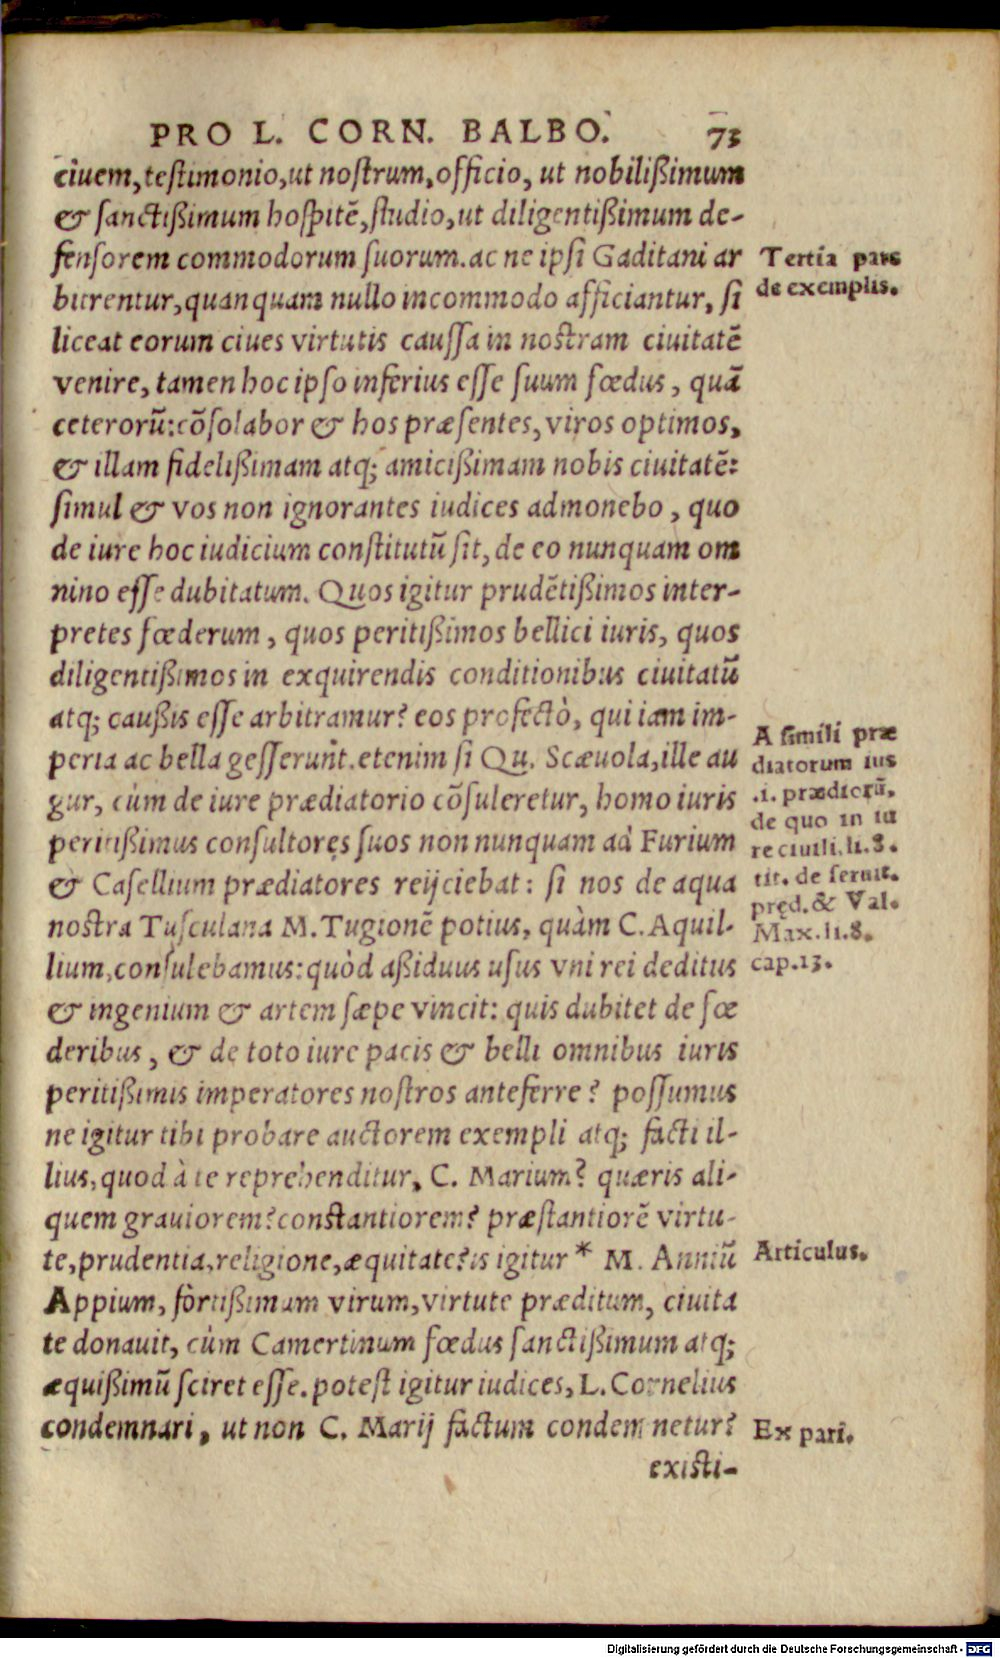 PRO L. CORN. BALBO. 73
ciuem, testimonio, ut nostrum, officio, ut nobilißimum
& sanctißimum hospitē, studio, ut diligentißimum de-
fensorem commodorum suorum. ac ne ipsi Gaditani ar
bitrentur, quanquam nullo incommodo afficiantur, si
liceat eorum ciues virtutis caussa in nostram ciuitatē
venire, tamen hoc ipso inferius esse suum fœdus, quā
ceterorū: cōsolabor & hos præsentes, viros optimos,
& illam fidelißimam atq; amicißimam nobis ciuitatē:
simul & vos non ignorantes iudices admonebo, quo
de iure hoc iudicium constitutū sit, de eo nunquam om
nino esse dubitatum. Quos igitur prudētißimos inter-
pretes fœderum, quos peritißimos bellici iuris, quos
diligentißimos in exquirendis conditionibus ciuitatū
atq; caußis esse arbitramur? eos profectò, qui iam im-
peria ac bella gesserunt. etenim si Qu. Scæuola, ille au
gur, cùm de iure prædiatorio cōsuleretur, homo iuris
peritißimus consultores suos non nunquam ad Furium
& Casellium prædiatores reijciebat: si nos de aqua
nostra Tusculana M. Tugionē potius, quàm C. Aquil-
lium, consulebamus: quòd aßiduus usus vni rei deditus
& ingenium & artem sæpe vincit: quis dubitet de fœ
deribus, & de toto iure pacis & belli omnibus iuris
peritißimis imperatores nostros anteferre? possumus
ne igitur tibi probare auctorem exempli atq; facti il-
lius, quod à te reprehenditur, C. Marium? quæris ali-
quem grauiorem? constantiorem? præstantiorē virtu-
te, prudentia, religione, æquitate? is igitur * M. Anniū
Appium, fortißimum virum, virtute præditum, ciuita
te donauit, cùm Camertinum fœdus sanctißimum atq;
æquißimū sciret esse. potest igitur iudices, L. Cornelius
condemnari, ut non C. Marij factum condemnetur?
existi-
Tertia pars
de exemplis.
A simili præ
diatorum ius
.i. prædiorū,
de quo in iu
re ciuili. li. 8.
tit. de seruit.
pręd. & Val.
Max. li. 8.
cap. 13.
Articulus.
Ex pari.
Digitalisierung gefördert durch die Deutsche Forschungsgemeinschaft - DFG